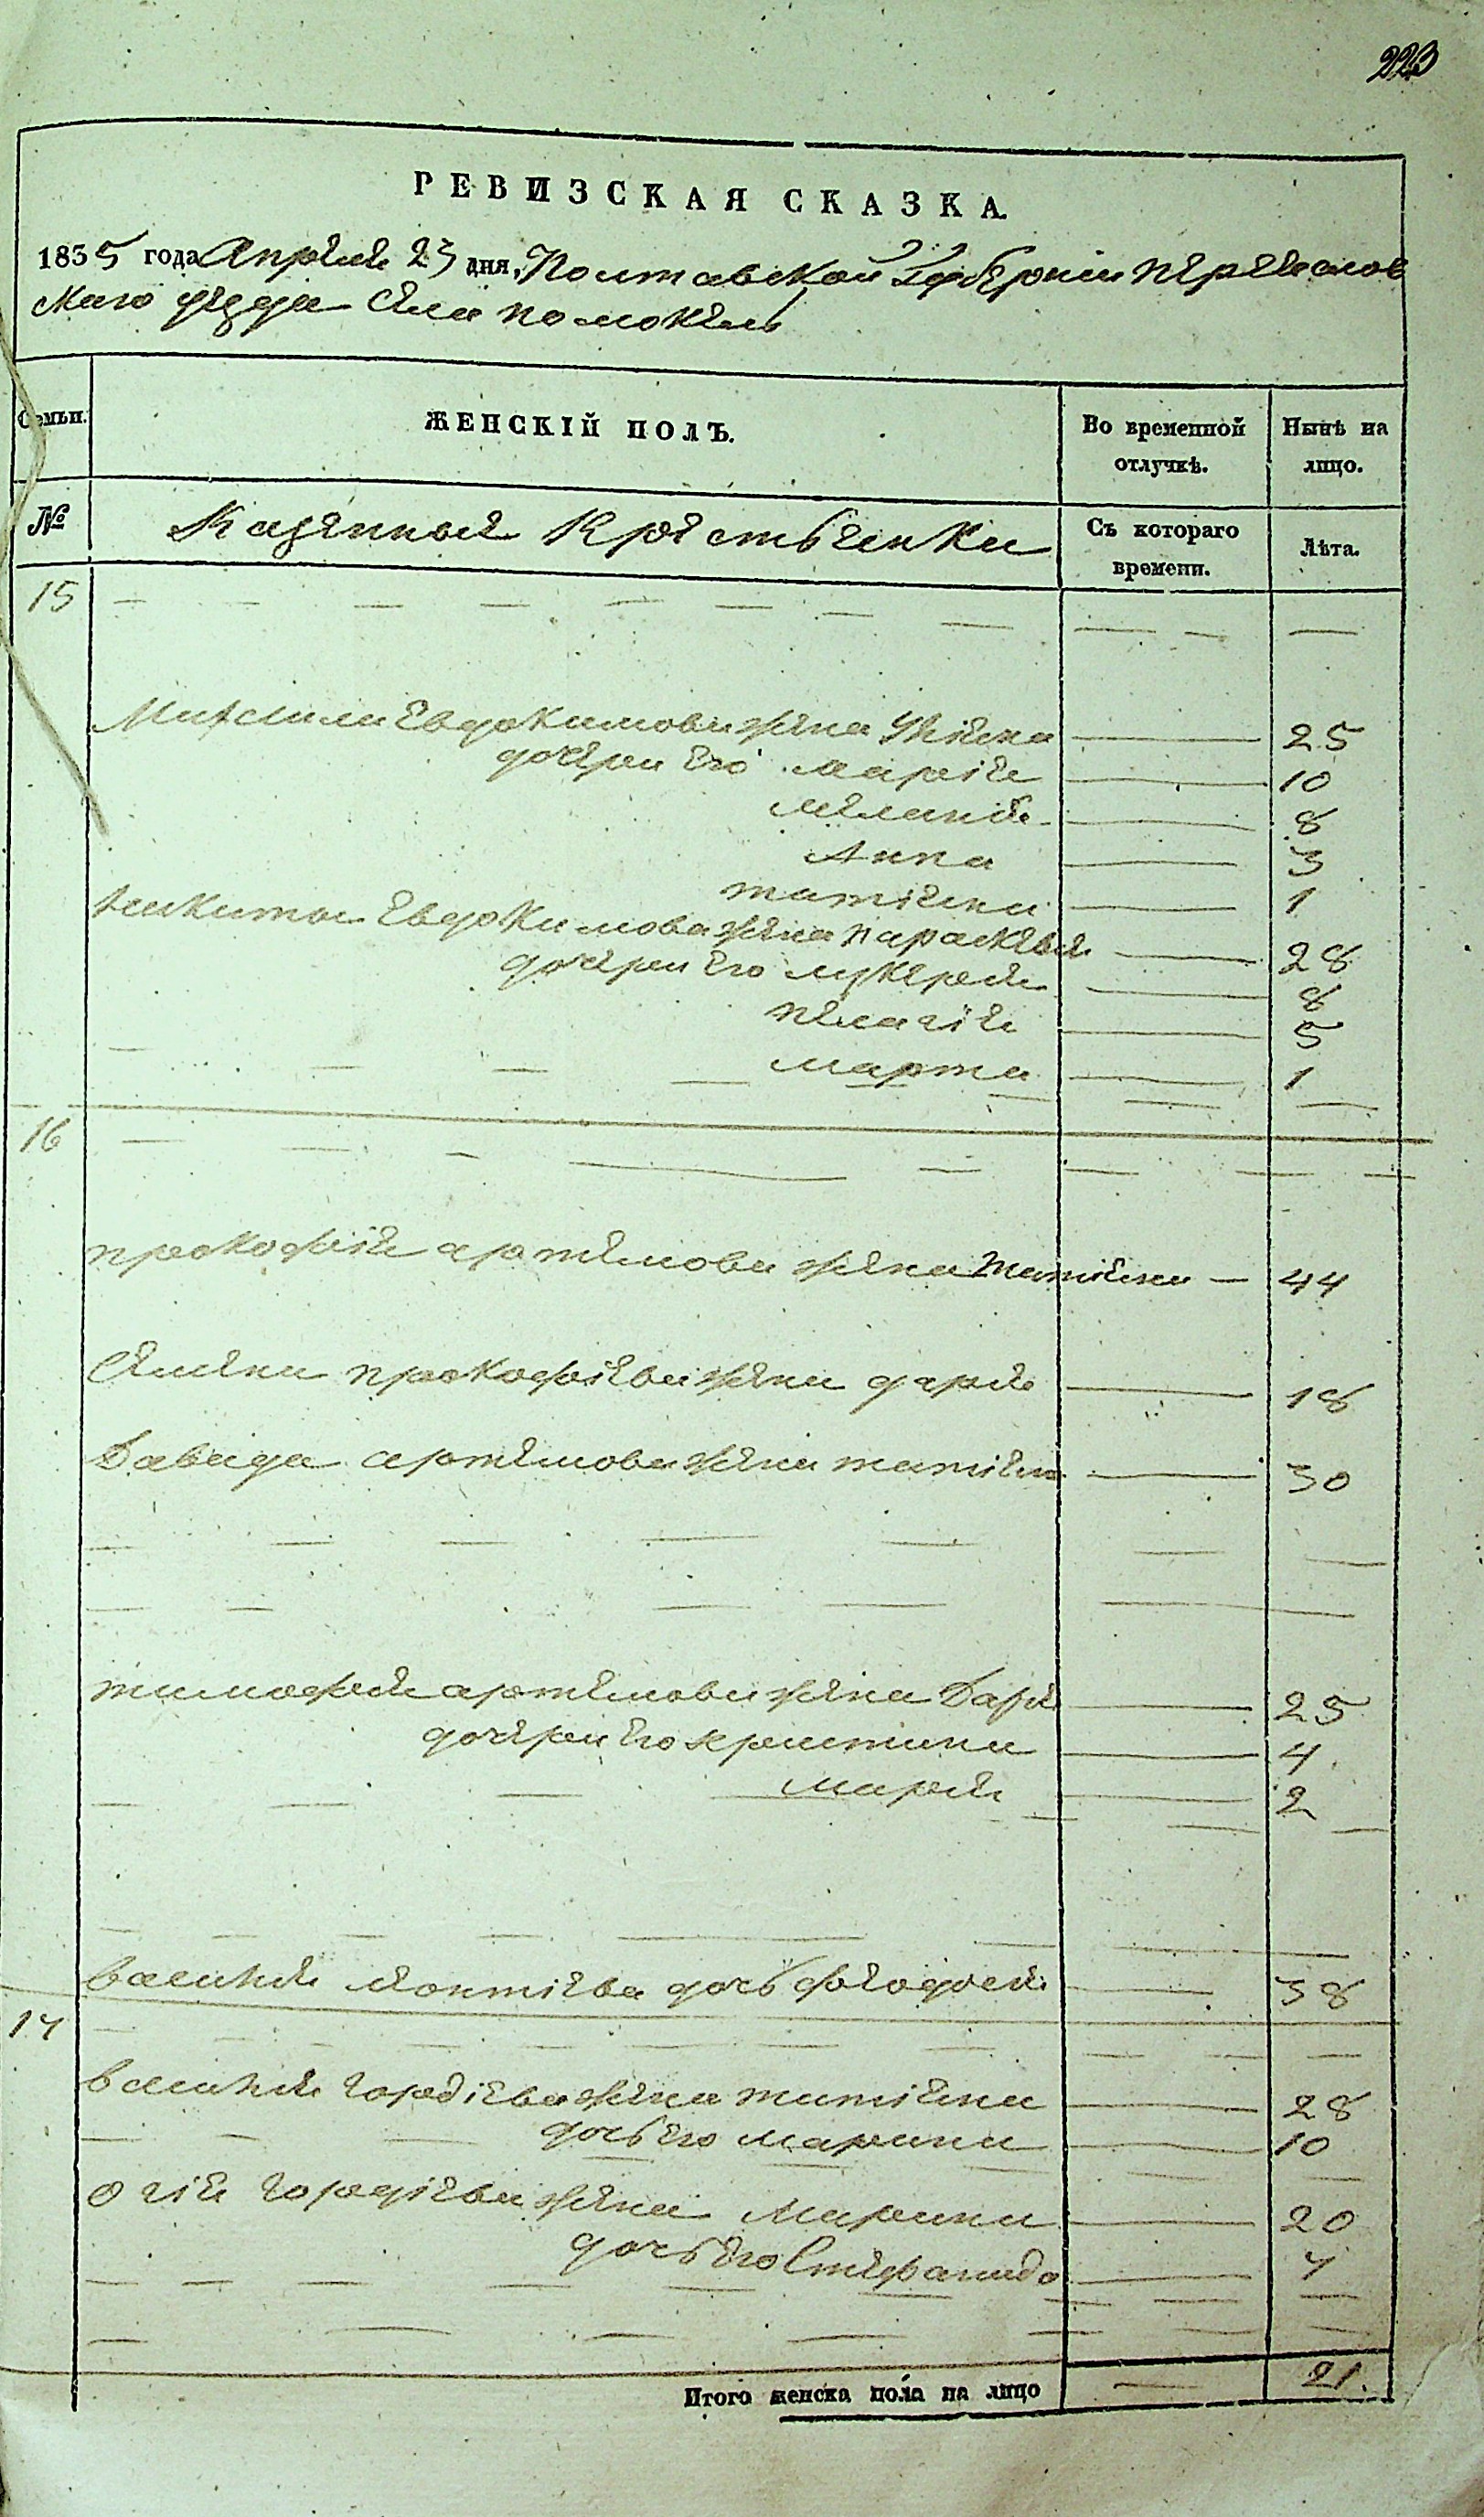 223
РЕВИЗСКАЯ СКАЗКА.
1835 года Апреля 23 дня, Полтавской Губернии переяслов
скаго уезда села помокель
Семьи. ЖЕНСКІЙ ПОЛЪ. Во временной отлучкѣ. Нынѣ на лицо.
№ Казенныя Крестьянки Съ котораго времени. Лѣта.
15
Евдокимова жена Уліяна 25
дочери его марія 10
меланія 8
Анна 3
татіяна 1
никиты Евдокимова жена параскевія 28
дочери его лукерія 8
пелагія 5
марта 1
16
прокофія артемова жена татіяна 44
Семена прокофіева жена дарія 18
Давида артемова жена татіяна 30
тимофея артемова жена Дарія 25
дочери его христина 4
марія 2
василия леонтіева дочь феодосія 38
17
василия гордіева жена татіяна 28
дочь его марина 10
гордіева жена Марина 20
дочь его Стефанида 4
Итого женска пола на лицо 21.